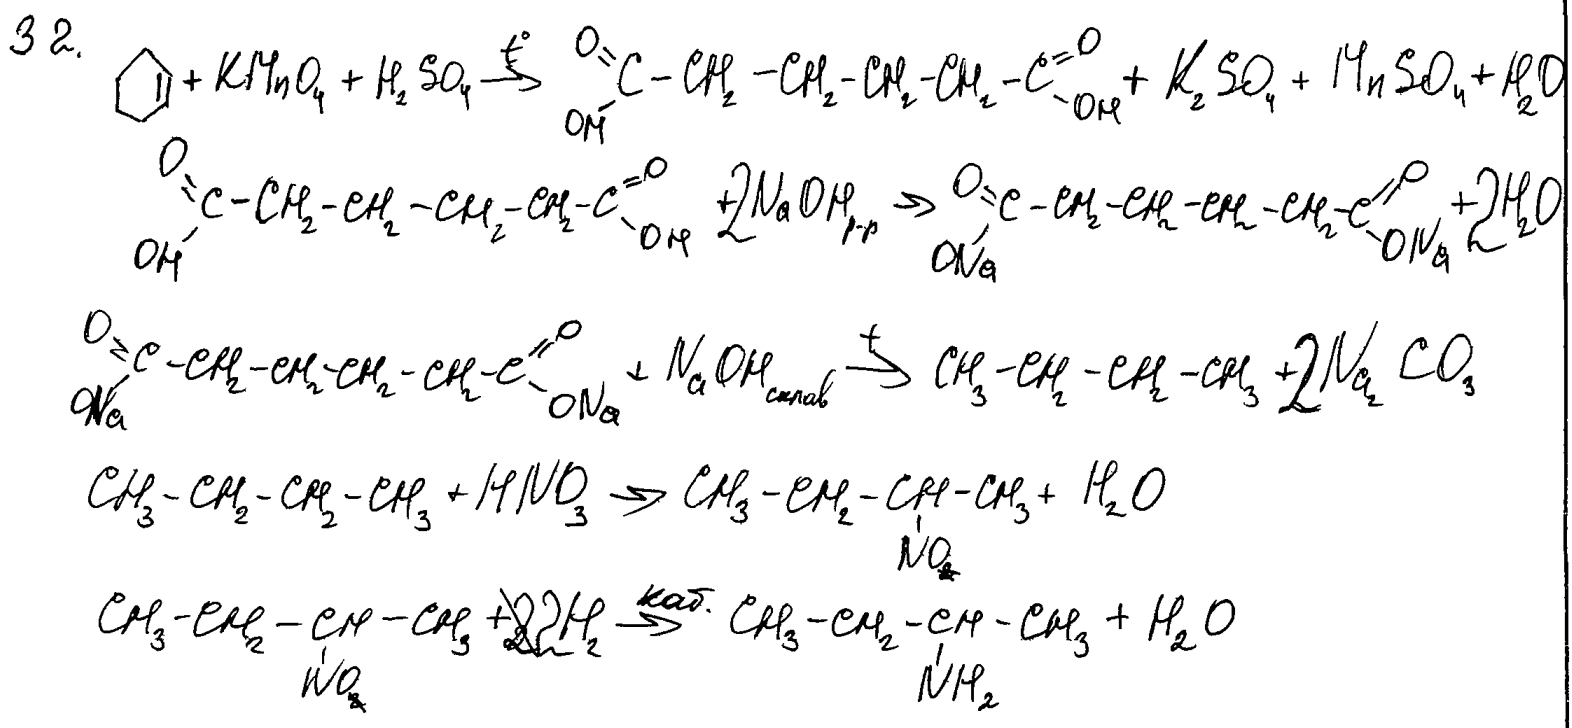 32.
+ KMnO₄ + H₂SO₄ →(t°) O=C(OH)-CH₂-CH₂-CH₂-CH₂-C(=O)OH + K₂SO₄ + MnSO₄ + H₂O
O=C(OH)-CH₂-CH₂-CH₂-CH₂-C(=O)OH + 2NaOH р-р → O=C(ONa)-CH₂-CH₂-CH₂-CH₂-C(=O)ONa + 2H₂O
O=C(ONa)-CH₂-CH₂-CH₂-CH₂-C(=O)ONa + NaOH сплав →(t) CH₃-CH₂-CH₂-CH₃ + 2Na₂CO₃
CH₃-CH₂-CH₂-CH₃ + HNO₃ → CH₃-CH₂-CH(NO₂)-CH₃ + H₂O
CH₃-CH₂-CH(NO₂)-CH₃ + 2H₂ →(кат.) CH₃-CH₂-CH(NH₂)-CH₃ + H₂O